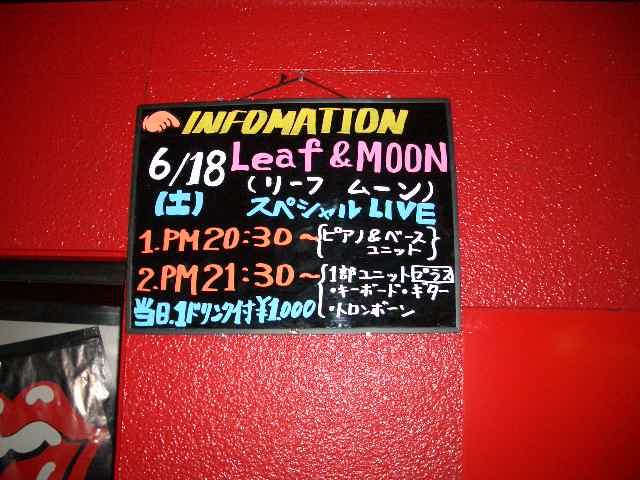 INFOMATION
6/18 Leaf & MOON
(土) (リーフ ムーン)
スペシャル LIVE
1. PM 20:30～ {ピアノ&ベース ユニット}
2. PM 21:30～ {1部ユニット プラス
・キーボード・ギター
・トロンボーン
当日.1ドリンク付¥1,000